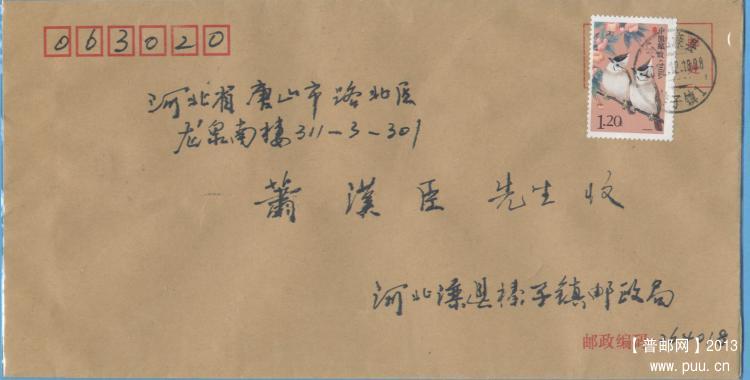 063020
河北省唐山市路北区
龙泉南楼311-3-301
萧汉臣 先生 收
河北滦县榛子镇邮政局
邮政编码 064018
中国邮政 CHINA
1.20
榛子镇1
【普邮网】2013
www.puu.cn